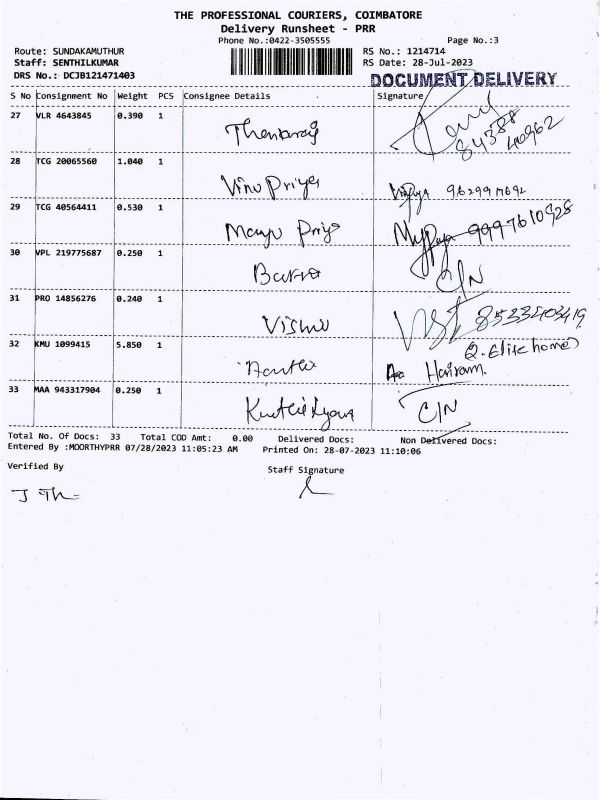 THE PROFESSIONAL COURIERS, COIMBATORE
Delivery Runsheet - PRR
Phone No.:0422-3505555 Page No.:3
Route: SUNDAKAMUTHUR RS No.: 1214714
Staff: SENTHILKUMAR RS Date: 28-Jul-2023
DRS No.: DCJB121471403 DOCUMENT DELIVERY
S No Consignment No Weight PCS Consignee Details Signature
27 VLR 4643845 0.390 1
84388
28 TCG 20065560 1.040 1
Vinu Priya 9629917692
29 TCG 40564411 0.530 1
Manju Priya 9997610928
30 VPL 219775687 0.250 1
C/N
31 PRO 14856276 0.240 1
Vishnu 8533403419
32 KMU 1099415 5.850 1 Elite home
Hariram.
33 MAA 943317904 0.250 1
C/N
Total No. Of Docs: 33 Total COD Amt: 0.00 Delivered Docs: Non Delivered Docs:
Entered By :MOORTHYPRR 07/28/2023 11:05:23 AM Printed On: 28-07-2023 11:10:06
Verified By Staff Signature